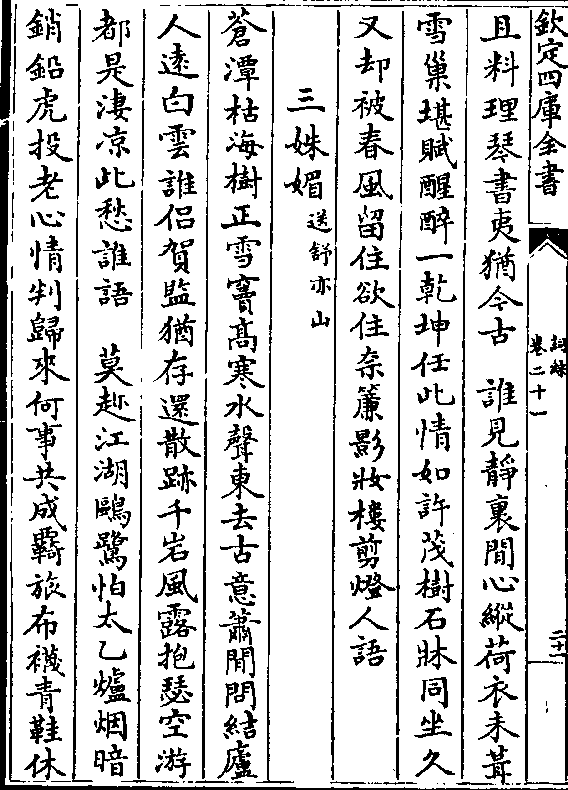 欽定四庫全書
詞綜
卷二十一
二十一
且料理琴書夷猶今古　誰見靜裏閒心縱荷衣未葺
雪巢堪賦醒醉一乾坤任此情如許茂樹石牀同坐久
又却被春風留住欲住奈簾影妝樓剪燈人語
三姝媚送舒亦山
蒼潭枯海樹正雪竇高寒水聲東去古意蕭閒問結廬
人逺白雲誰侣賀監猶存還散跡千岩風露抱瑟空游
都是淒凉此愁誰語　莫趂江湖鷗鷺怕太乙爐烟暗
銷鉛虎投老心情判歸來何事共成羇旅布襪青鞋休